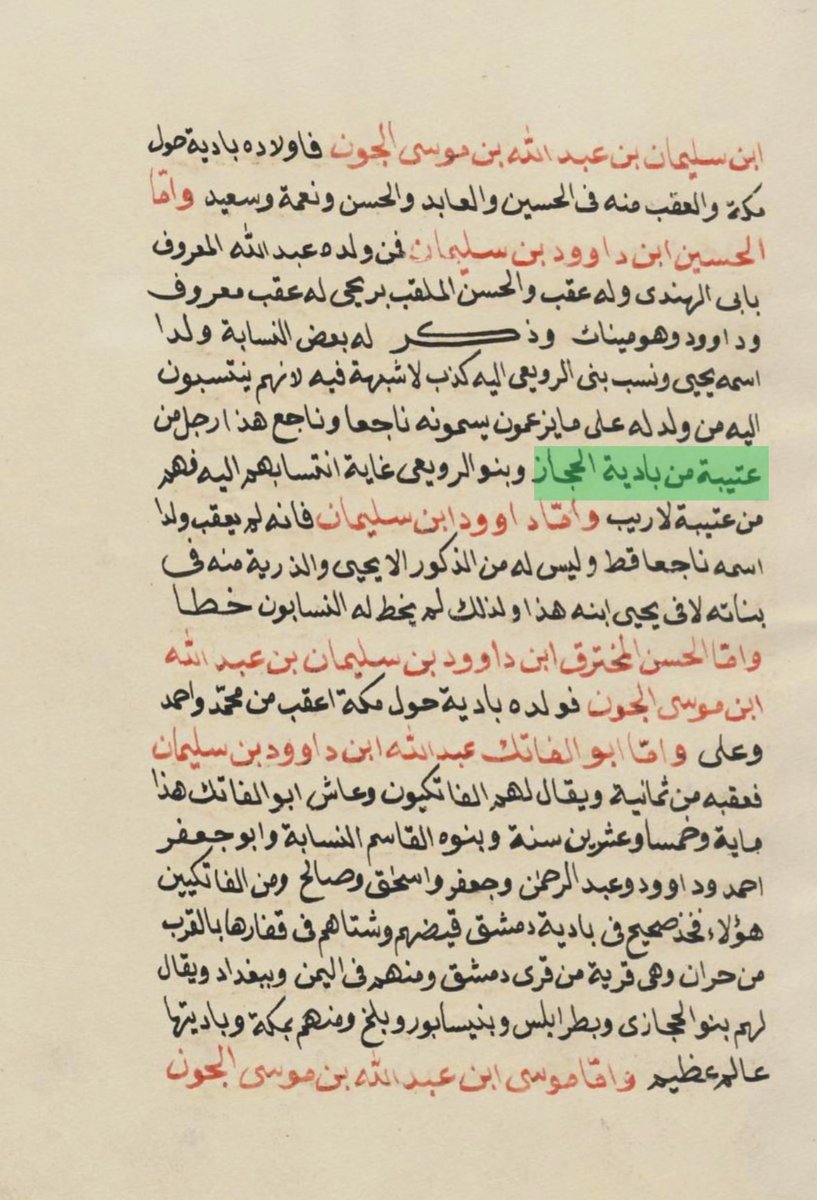 ابن سليمان بن عبد الله بن موسى الجون فاولاده بادية حول
مكة والعقب منه فى الحسين والعابد والحسن ونعمة وسعيد وامّا
الحسين ابن داوود بن سليمان فمن ولده عبد الله المعروف
بابى الهندى وله عقب والحسن الملقب بريحى له عقب معروف
وداوود وهو ميناث وذكر له بعض النسابة ولدا
اسمه يحيى ونسب بنى الرويعى اليه كذب لا شبهة فيه لانهم ينتسبون
اليه من ولد له على مايزعمون يسمونه ناجعا وناجع هذا رجل من
عتيبة من بادية الحجاز وبنو الرويعى غاية انتسابهم اليه فهم
من عتيبة لاريب وامّا داوود ابن سليمان فانه لم يعقب ولدا
اسمه ناجعا قط وليس له من الذكور الا يحيى والذرية منه فى
بناته لا فى يحيى ابنه هذا ولذلك لم يخط له النسابون خطا
وامّا الحسن المخترق ابن داوود بن سليمان بن عبد الله
ابن موسى الجون فولده بادية حول مكة اعقب من محمّد واحمد
وعلى وامّا ابو الفاتك عبد الله ابن داوود بن سليمان
فعقبه من ثمانية ويقال لهم الفاتكيون وعاش ابو الفاتك هذا
ماية وخمسا وعشرين سنة وبنوه القاسم النسابة وابو جعفر
احمد وداوود وعبد الرحمن وجعفر واسحق وصالح ومن الفاتكيين
هؤلاء فخذ صحيح فى بادية دمشق قيضهم وشتاهم فى قفارها بالقرب
من حران وهى قرية من قرى دمشق ومنهم فى اليمن وببغداد ويقال
لهم بنو الحجازى وبطرابلس وبنيسابور وبلخ ومنهم بمكة وباديتها
عالم عظيم وامّا موسى ابن عبد الله بن موسى الجون